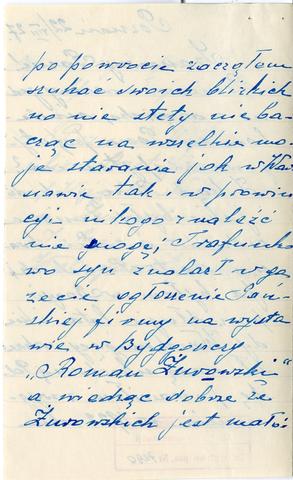 po powrocie zaczęłam
szukać swoich blizkich
no nie stety nie ba-
cząc na wszelkie mo-
je starania jak w War
szawie tak i w prowin
cyi nikogo znaleźć
nie mogę. Trafunko
wo syn znalazł w ga
zecie ogłoszenie Pań-
skiej firmy na wysta
wie w Bydgoszczy
„Roman Żurowski"
a wiedząc dobrze że
Żurowskich jest mało